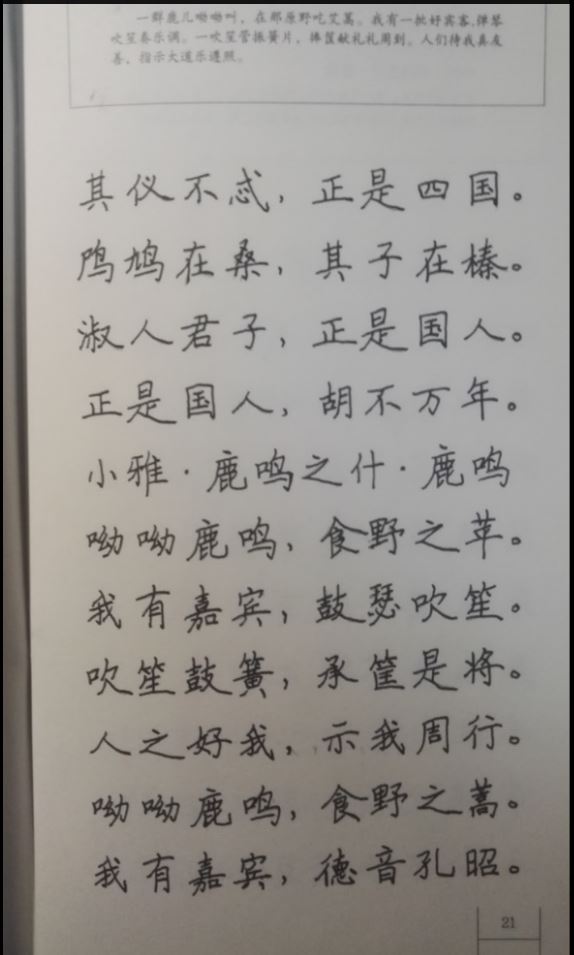 一群鹿儿呦呦叫，在那原野吃艾蒿。我有一批好宾客，弹琴
吹笙奏乐调。一吹笙管振簧片，捧筐献礼礼周到。人们待我真友
善，指示大道乐遵照。
其仪不忒，正是四国。
鸤鸠在桑，其子在榛。
淑人君子，正是国人。
正是国人，胡不万年。
小雅·鹿鸣之什·鹿鸣
呦呦鹿鸣，食野之苹。
我有嘉宾，鼓瑟吹笙。
吹笙鼓簧，承筐是将。
人之好我，示我周行。
呦呦鹿鸣，食野之蒿。
我有嘉宾，德音孔昭。
21